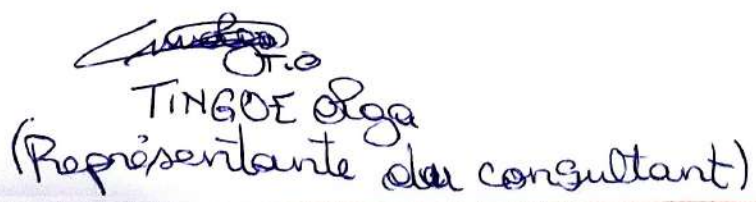 T.O
TINGOE Olga
(Représentante du consultant)